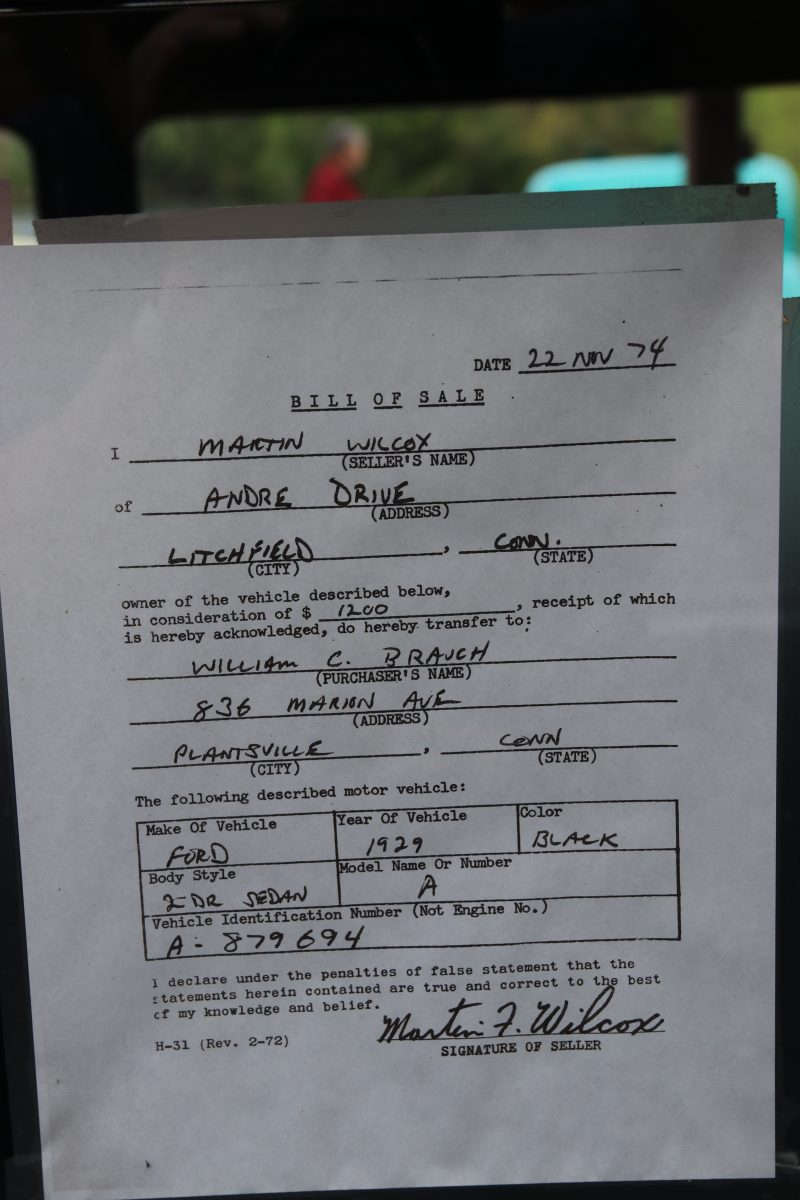 DATE 22 NOV 74
BILL OF SALE
I MARTIN WILCOX
(SELLER'S NAME)
of ANDRE DRIVE
(ADDRESS)
LITCHFIELD, CONN.
(CITY) (STATE)
owner of the vehicle described below,
in consideration of $ 1200, receipt of which
is hereby acknowledged, do hereby transfer to:
WILLIAM C. BRAUCH
(PURCHASER'S NAME)
836 MARION AVE
(ADDRESS)
PLANTSVILLE, CONN
(CITY) (STATE)
The following described motor vehicle:
Make Of Vehicle Year Of Vehicle Color
FORD 1929 BLACK
Body Style Model Name Or Number
2-DR SEDAN A
Vehicle Identification Number (Not Engine No.)
A- 879694
I declare under the penalties of false statement that the
statements herein contained are true and correct to the best
of my knowledge and belief.
Martin F. Wilcox
H-31 (Rev. 2-72) SIGNATURE OF SELLER